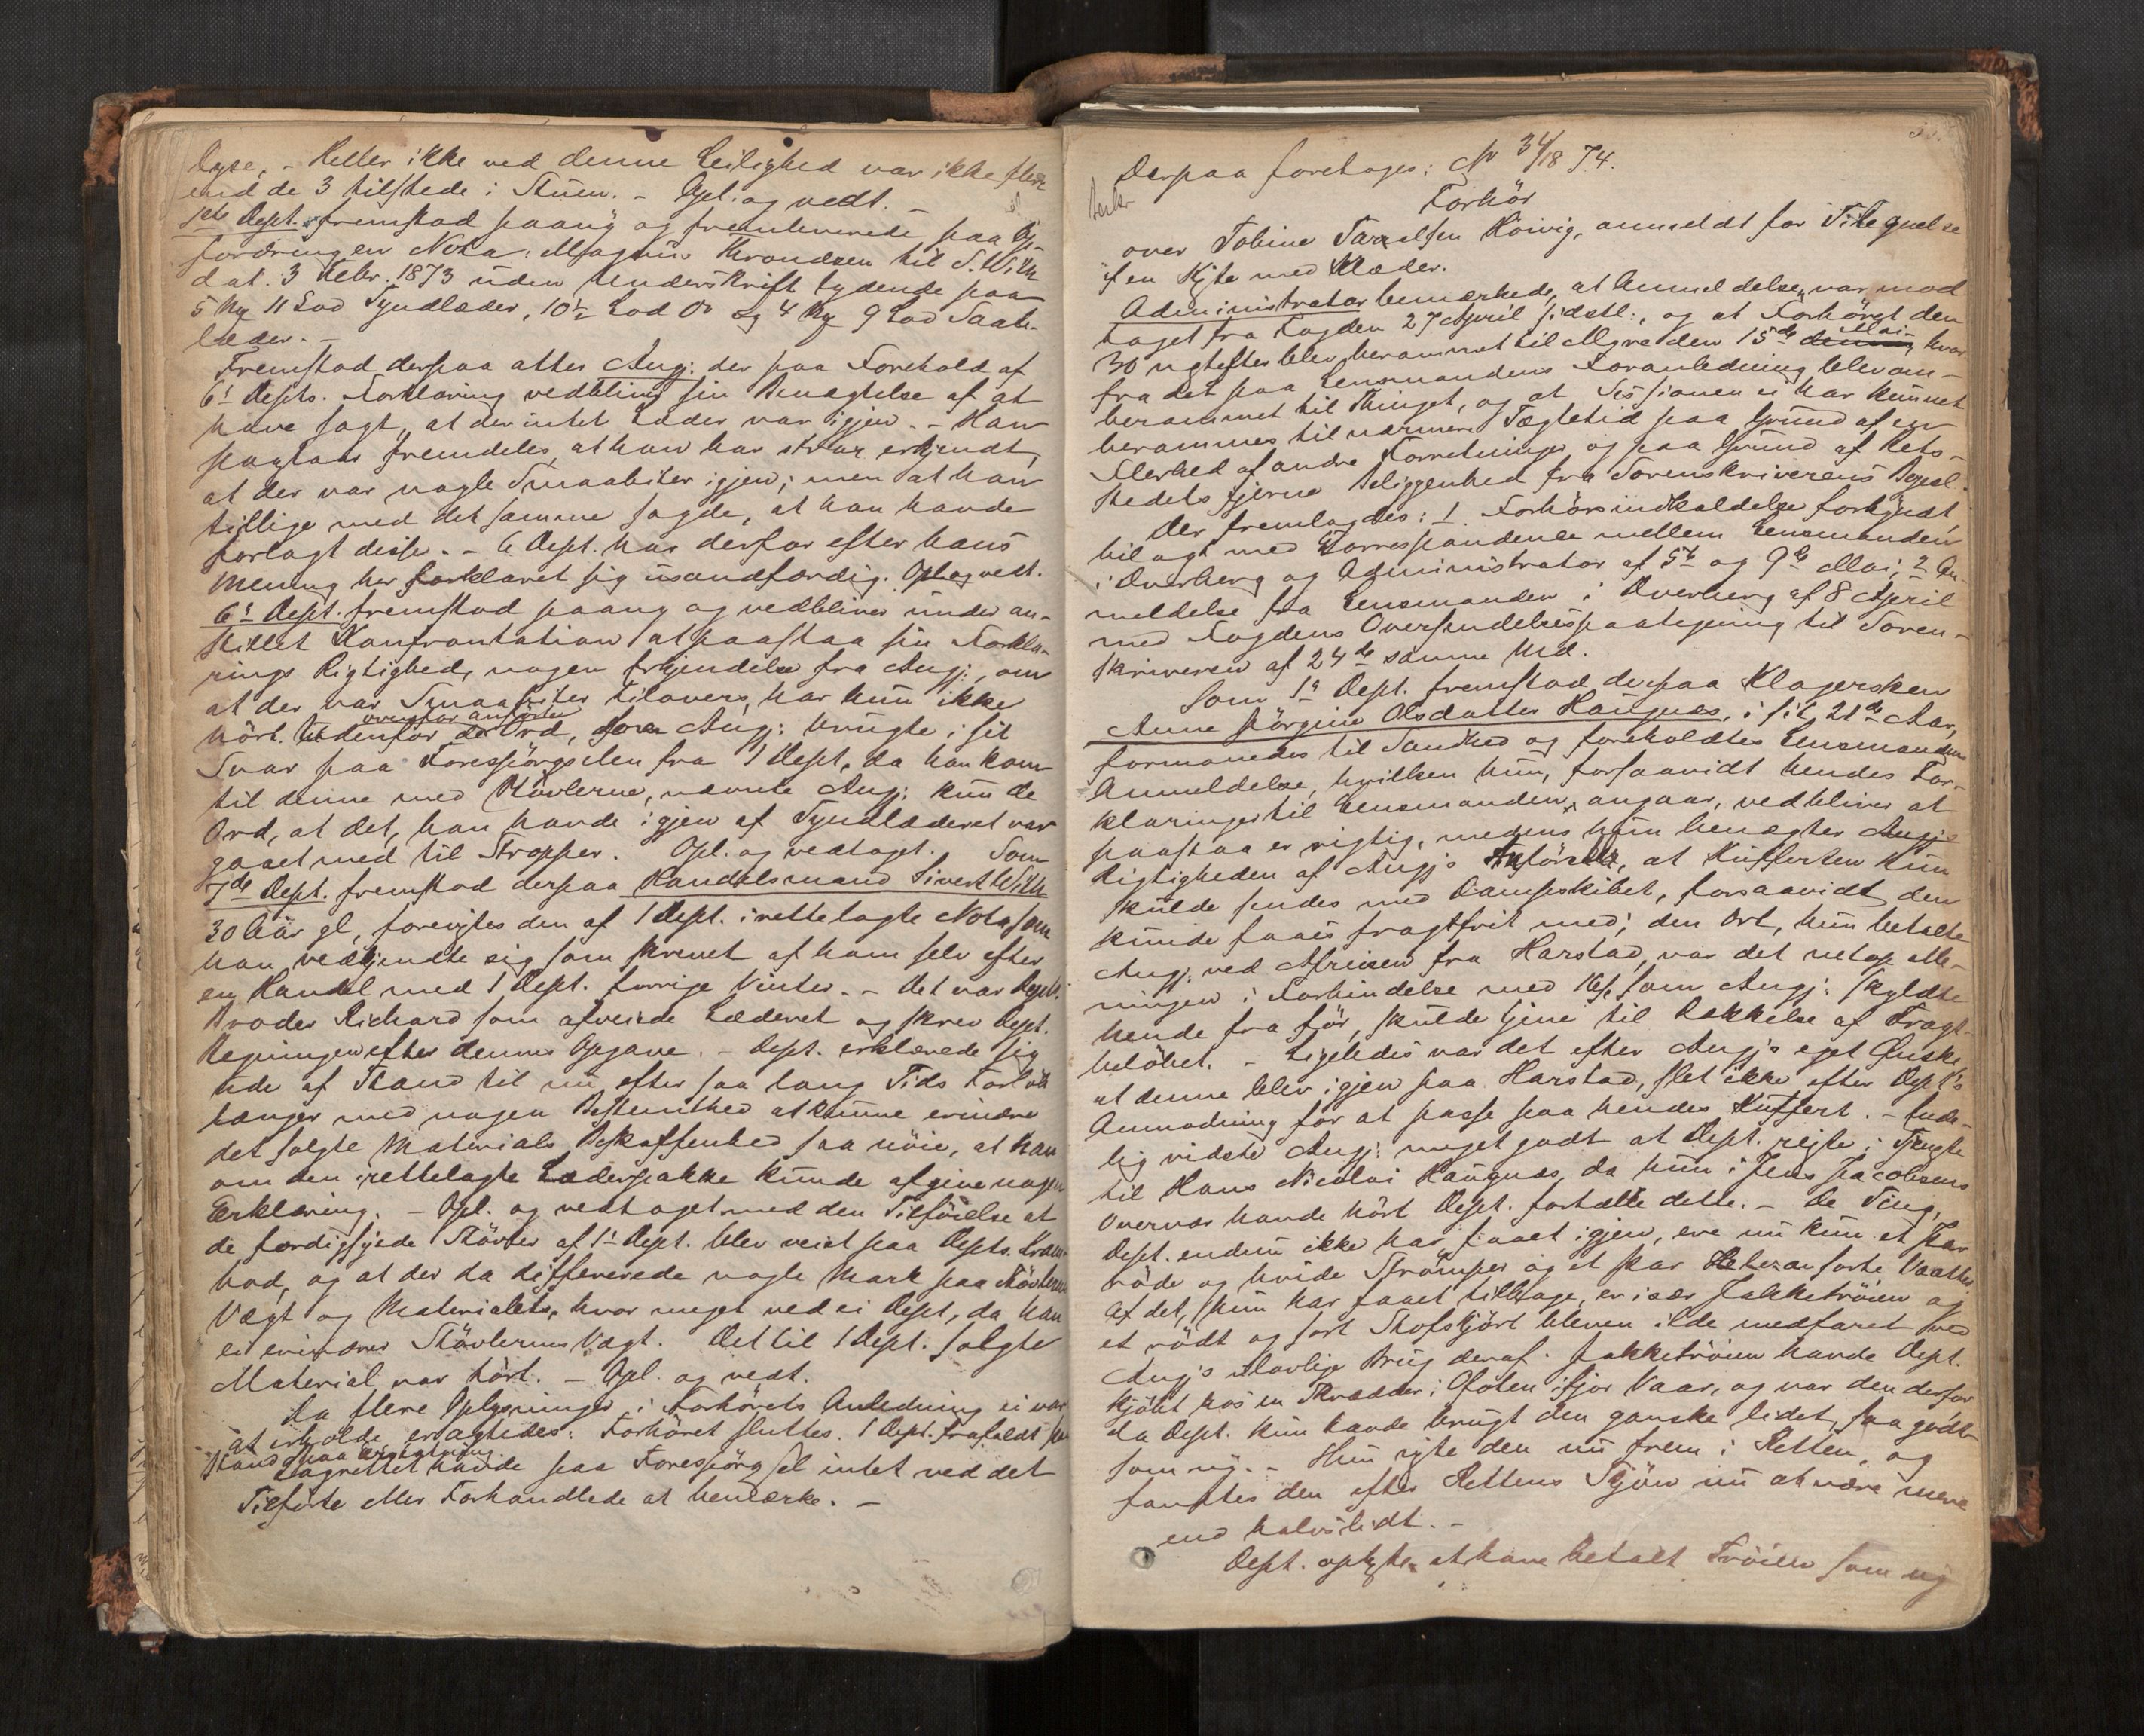 Døse, - Heller ikke ved denne Leilighed var ikke flere
end de 3 tilstede i Stuen. - Opl. og vedt.
1ste Dept. fremstod paany og fremleverede paa Op-
fordringen Nota: Magnus Krondsen til S. With
dat. 3 Febr. 1873 uden Underskrift lydende paa
5 Mk 11 Lod Tyndlæder, 10½ Lod Do og 4 Mk 9 Lod Saale-
læder. -
Fremstod derpaa atter Angj: der paa Forehold af
6t Depts. Forklaring vedbliver sin Benægtelse af at
have sagt, at der intet Læder var igjen. - Han
paastaar fremdeles, at han har strax erkjendt,
at der var nogle Smaabiter igjen; men at han
tillige med det samme sagde, at han havde
forlagt disse. - 6 Dept. har derfor efter hans
Mening her forklaret sig usandfærdig. Opl. og vedt.
6te Dept. fremstod paany og vedbliver under an-
stillet Konfrontation at paastaa sin Forkla-
rings Rigtighed, nogen Erkjendelse fra Angj:, om
at der var Smaabiter tilovers, har hun ikke
hørt. Udenfor de ovenfor anførte Ord, som Angj: brugte i sit
Svar paa Forespørgselen fra 1 Dept, da han kom
til denne med Støvlerne, nævnte Angj: kun de
Ord, at det, han havde igjen af Tyndlæderet var
gaaet med til Stropper. Opl. og vedtaget. Som
7de Dept. fremstod derpaa Handelsmand Sivert With
30 Aar gl, forevistes den af 1 Dept. irettelagte Nota, som
han vedkjendte sig som skrevet af ham selv efter
en Handel med 1 Dept. forrige Vinter. - Det var Depts.
Broder Richard som afveiede Læderet og skrev Dept.
Regningen efter dennes Opgave. - Dept. erklærede sig
ude af Stand til nu efter saa lang Tids Forløb
længer med nogen Bestemthed at kunne erindre
det solgte Materials Beskaffenhed saa nøie, at han
om den irettelagte Læderpakke kunde afgive nogen
Erklæring. - Opl. og vedtaget med den Tilføielse at
de færdigsyede Støvler af 1ste Dept. blev veiet paa Depts. Kram-
bod, og at der da differerede nogle Mark paa Støvlernes
Vægt og Materialets, hvor meget ved ei Dept, da han
ei erindrer Støvlernes Vægt. Det til 1 Dept. solgte
Material var tørt. - Opl. og vedt.
Da flere Oplysninger i Forhørets Anledning ei var
at erholde eragtedes: Forhøret sluttes. 1 Dept. frafaldt
Paastand paa Erstatning.
Lagrettet havde paa Forespørgsel intet ved det
Tilførte eller Forhandlede at bemærke. -
Derpaa foretoges: No 34/18 74.
Forhør
over Tobine Taraldsen Køivig, anmeldt for Tilegnelse
af en Kiste med Klæder.
Administrator bemærkede, at Anmeldelsen var mod
taget fra Fogden 27 April sidstl:, og at Forhøret den
30 ugtefter blev berammet til Myre den 15de denne Mai, hvor
fra det paa Lensmandens Foranledning blev om-
berammet til Thinget, og at Sessionen ei har kunnet
berammes til nærmere Tægtetid paa Grund af en
Flerhed af andre Forretninger og paa Grund af Rets-
stedets fjerne Beliggenhed fra Sorenskriverens Bopæl.
Der fremlagdes: 1. Forhørsindkaldelse forkyndt,
bilagt med Korrespondence mellem Lensmanden
i Dverberg og Administrator af 5te og 9de Mai; 2 An-
meldelse fra Lensmanden i Dverberg af 8 April
med Fogdens Oversendelsespaategning til Soren-
skriveren af 24de samme Md.
Som 1ste Dept. fremstod derpaa Klagersken
Anne Jørgine Olsdatter Haugnæs, i sit 21de Aar,
formanedes til Sandhed og foreholdtes Lensmandens
Anmeldelse, hvilken hun, forsaavidt hendes For-
klaringer til Lensmanden angaar, vedbliver at
paastaa er rigtig, medens hun benægter Angj:s
Rigtigheden af Angjs Anførsler, at Kufferten kun
skulde sendes med Dampskibet, forsaavidt den
kunde faaes fragtfrit med; den Ort, hun betalte
Angj. ved Afreisen fra Harstad, var det netop Me-
ningen i Forbindelse med 16 s, som Angj: skyldte
hende fra før, skulde tjene til Dækkelse af Fragt-
beløbet. - Ligeledes var det efter Angjs eget Ønske,
at denne blev igjen paa Harstad, slet ikke efter Dept's
Anmodning for at passe paa hendes Kuffert. - Ende-
lig vidste Angj: meget godt at Dept. reiste i Tjeneste
til Hans Nicolai Haugnæs, da hun i Jens Jacobsens
Overvær havde hørt Dept. fortælle dette. - De Ting,
Dept. endnu ikke har faaet igjen, ere nu kun et Par
røde og hvide Strømper og et Par sorte Vaatter.
Af det, hun har faaet tilbage, er især Jakketrøien og
et rødt og sort Stofskjørt bleven ilde medfaret ved
Angjs ulovlige Brug deraf. Jakketrøien havde Dept.
kjøbt hos en Skrædder i Ofoten ifjor Vaar, og var den derfor
da Dept. kun havde brugt den ganske lidet, saa godt
som ny. - Hun viste den nu frem i Retten, og
fandtes den efter Rettens Skjøn nu at være mere
end halvslidt. -
Dept. oplyste at have betalt Trøien som ny